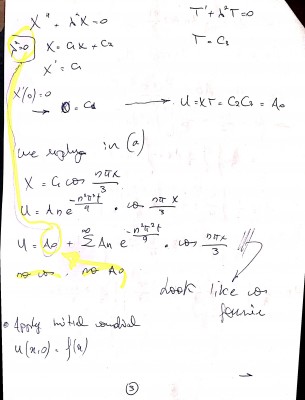 X'' + λ²X = 0
T' + λ²T = 0
λ²=0 X = C₁x + C₂
T = C₃
X' = C₁
X'(0) = 0
→ 0 = C₁ → U = XT = C₂C₃ = A₀
we in (a)
X = C₁ cos nπx/3
U = Aₙ e^(-n²π²t/9) . cos nπx/3
U = A₀ + Σ^∞ Aₙ e^(-n²π²t/9) . cos nπx/3
no cos, no A₀
Look like cos
• Apply initial
u(x,0) = f(x)
3